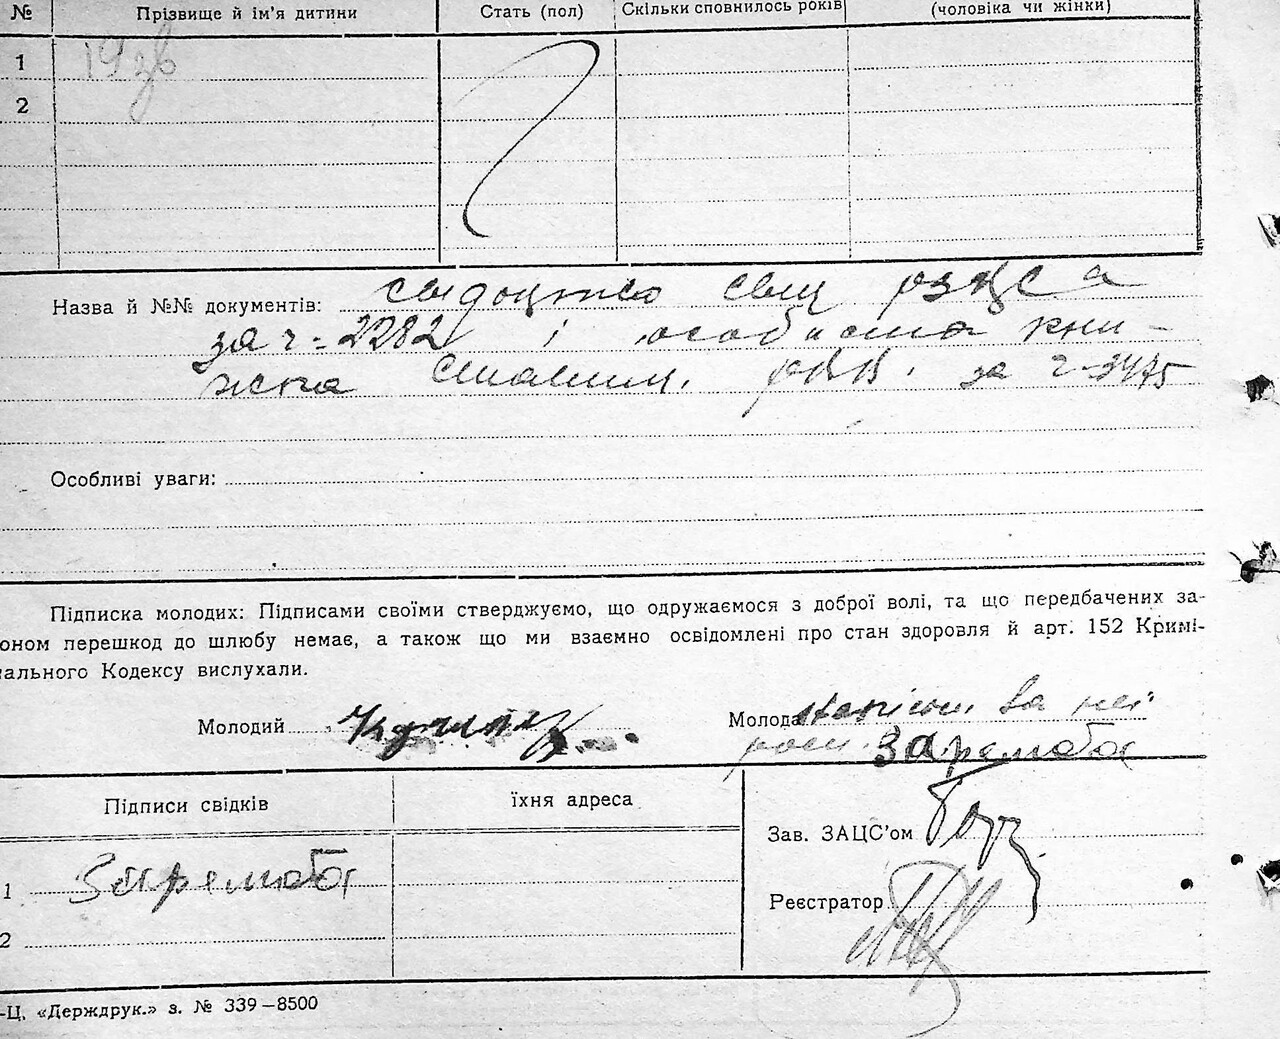 № Прізвище й ім'я дитини Стать (пол) Скільки сповнилось років (чоловіка чи жінки)
1
2
Назва й №№ документів: свідоцтво
за ч-2282 і особиста кни-
жка за ч-3475
Особливі уваги:
Підписка молодих: Підписами своїми стверджуємо, що одружаємося з доброї волі, та що передбачених за-
оном перешкод до шлюбу немає, а також що ми взаємно освідомлені про стан здоровля й арт. 152 Кримі-
ального Кодексу вислухали.
Молодий Молода за неї
Заремба
Підписи свідків їхня адреса
Зав. ЗАЦС'ом
1 Заремба
Реєстратор
2
-Ц, «Держдрук.» з. № 339—8500